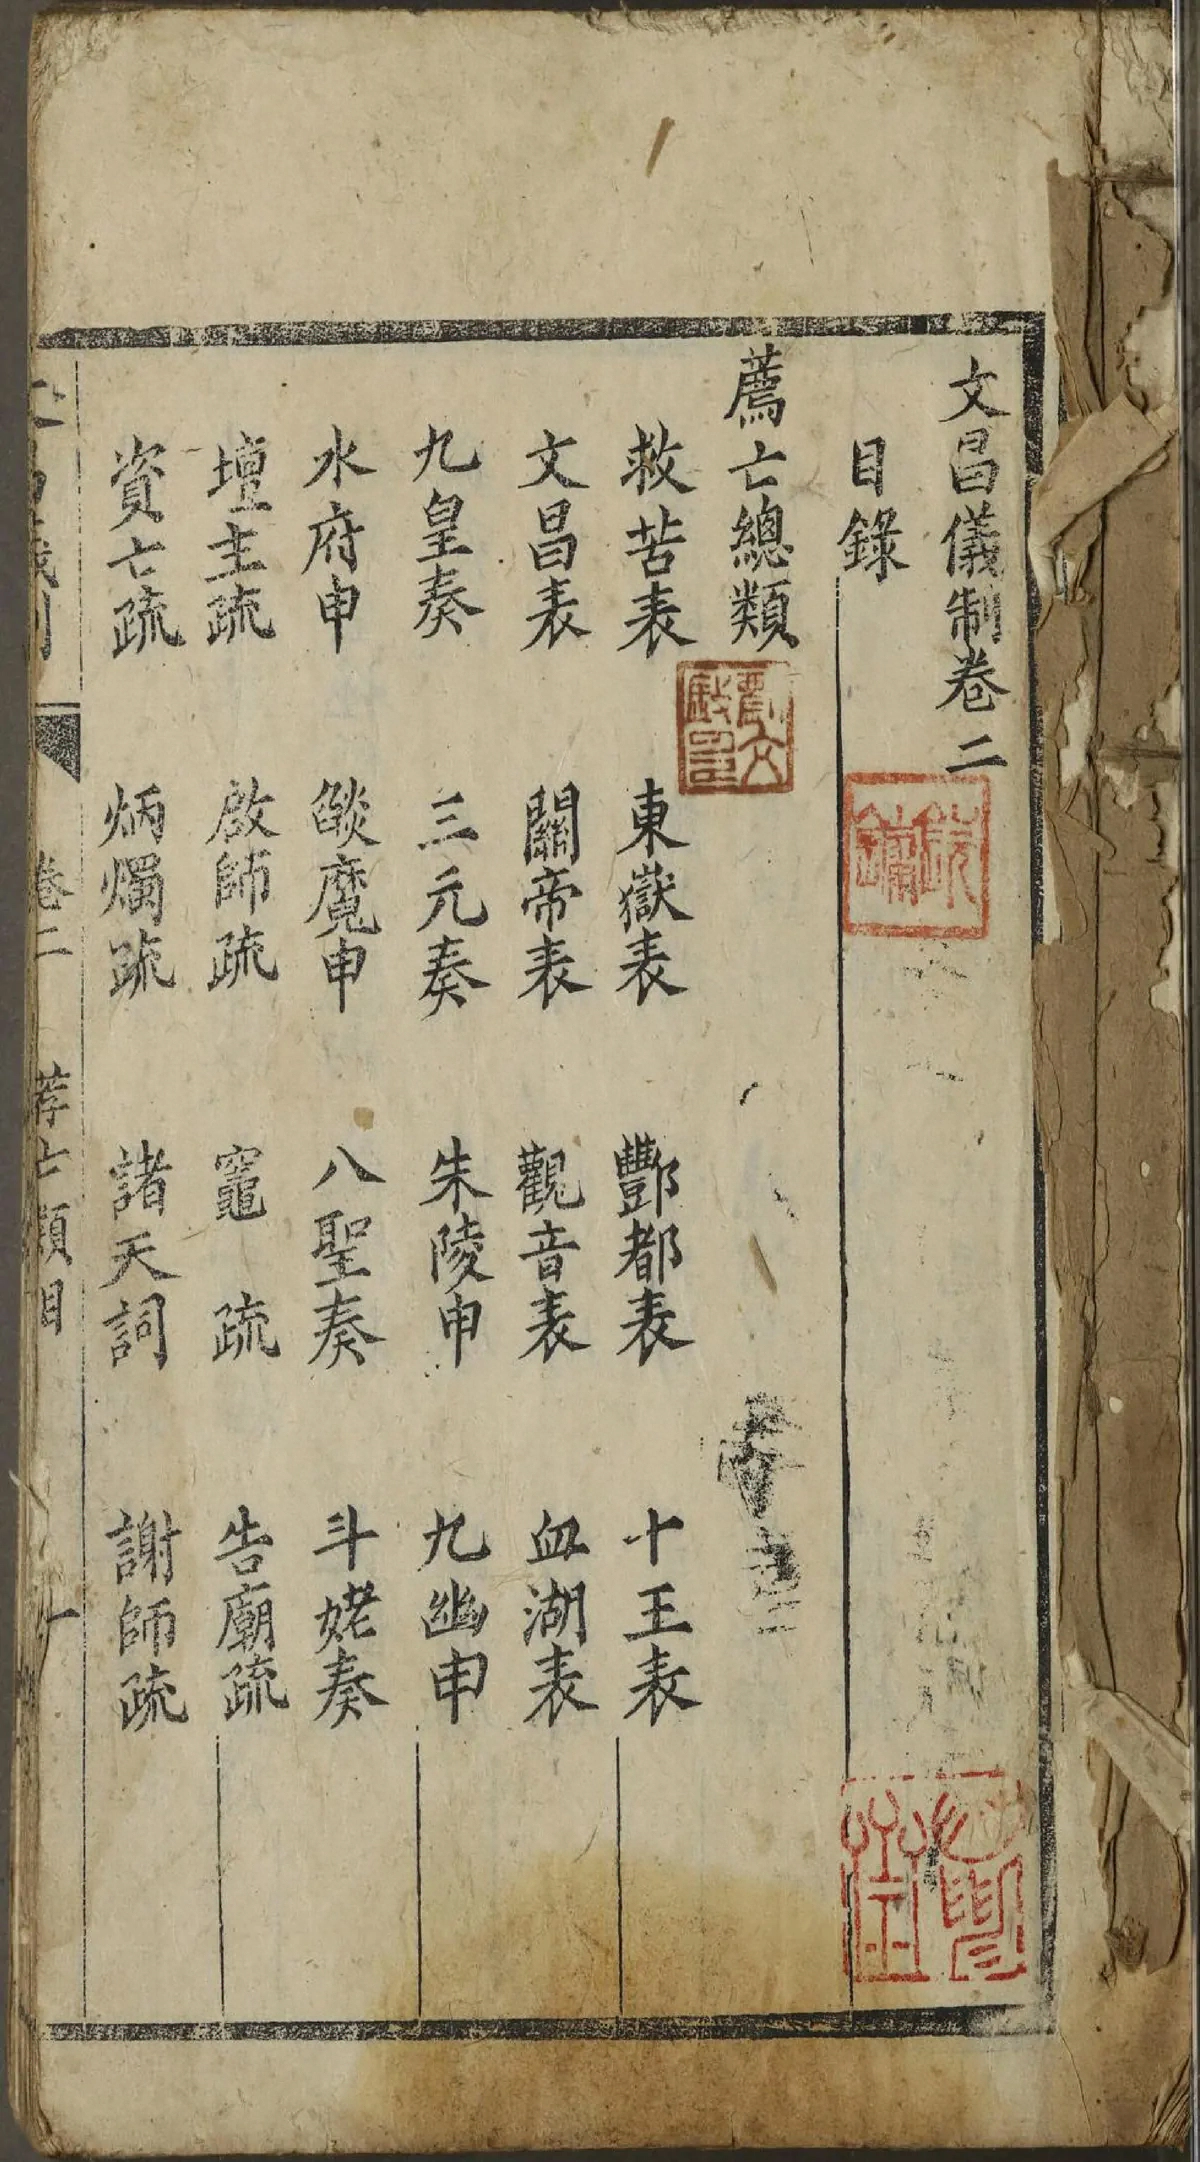 文昌儀制卷二
目錄
薦亡總類
救苦表 東嶽表 酆都表 十王表
文昌表 關帝表 觀音表 血湖表
九皇奏 三元奏 朱陵申 九幽申
水府申 燄魔申 八聖奏 斗姥奏
壇主疏 啟師疏 竈疏 告廟疏
資亡疏 炳燭疏 諸天詞 謝師疏
卷二 荐亡類目 一